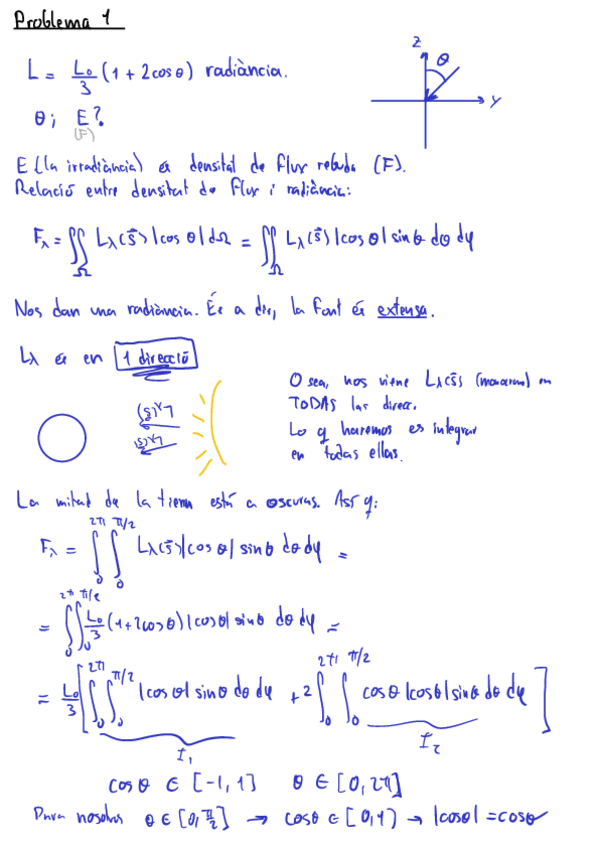 Problema 1
L = L₀/3 (1 + 2cosθ) radiància.
θ; E?
(F)
Z
θ
Y
E (la irradiància) és densitat de flux rebuda (F).
Relació entre densitat de flux i radiància:
Fλ = ∬_Ω Lλ(s⃗) |cos θ| dΩ = ∬_Ω Lλ(s⃗) |cos θ| sinθ dθ dφ
Nos dan una radiància. És a dir, la font és extensa.
Lλ és en 1 direcció
Lλ(s⃗)
Lλ(s⃗)
O sea, nos viene Lλ(s⃗) en
TODAS las direcc.
Lo q haremos es integrar
en todas ellas.
La mitad de la tierra está a oscuras. Así q:
Fλ = ∫₀^{2π} ∫₀^{π/2} Lλ(s⃗) |cos θ| sinθ dθ dφ =
= ∫₀^{2π} ∫₀^{π/2} L₀/3 (1+2cosθ) |cosθ| sinθ dθ dφ =
= L₀/3 [ ∫₀^{2π} ∫₀^{π/2} |cosθ| sinθ dθ dφ + 2 ∫₀^{2π} ∫₀^{π/2} cosθ |cosθ| sinθ dθ dφ ]
I₁
I₂
cosθ ∈ [-1, 1] θ ∈ [0, 2π]
Para nosotros θ ∈ [0, π/2] → cosθ ∈ [0, 1] → |cosθ| = cosθ